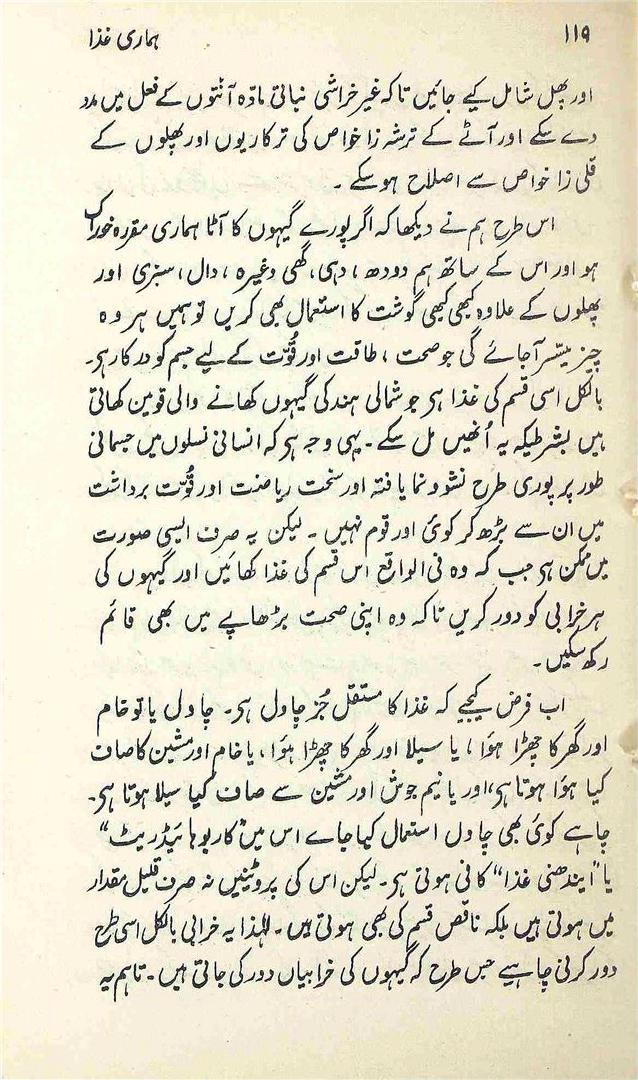 ۱۱۹
ہماری غذا
اور پھل شامل کیے جائیں تاکہ غیر خراشی نباتی مادّہ آنتوں کے فعل میں مدد
دے سکے اور آٹے کے ترشہ زا خواص کی ترکاریوں اور پھلوں کے
قلی زا خواص سے اصلاح ہو سکے ۔
اس طرح ہم نے دیکھا کہ اگر پورے گیہوں کا آٹا ہماری مقررہ خوراک
ہو اور اس کے ساتھ ہم دودھ ، دہی، گھی وغیرہ ، دال، سبزی اور
پھلوں کے علاوہ کبھی کبھی گوشت کا استعمال بھی کریں تو ہمیں ہر وہ
چیز میسّر آجائے گی جو صحت ، طاقت اور قُوّت کے لیے جسم کو درکار ہی۔
بالکل اسی قسم کی غذا ہی جو شمالی ہند کی گیہوں کھانے والی قومیں کھاتی
ہیں بشرطیکہ یہ اُنھیں مل سکے ۔ یہی وجہ ہی کہ انسانی نسلوں میں جسمانی
طور پر پوری طرح نشو و نما یافتہ اور سخت ریاضت اور قُوّت برداشت
میں ان سے بڑھ کر کوئی اور قوم نہیں ۔ لیکن یہ صرف ایسی صورت
میں ممکن ہی جب کہ وہ فی الواقع اس قسم کی غذا کھائیں اور گیہوں کی
ہر خرابی کو دور کریں تاکہ وہ اپنی صحت بڑھاپے میں بھی قائم
رکھ سکیں ۔
اب فرض کیجیے کہ غذا کا مستقل جُز چاول ہی۔ چاول یا تو خام
اور گھر کا چھڑا ہؤا ، یا سیلا اور گھر کا چھڑا ہؤا ، یا خام اور مشین کا صاف
کیا ہؤا ہوتا ہی، اور یا نیم جوش اور مشین سے صاف کیا سیلا ہوتا ہی۔
چاہے کوئی بھی چاول استعمال کیا جاے اس میں "کاربوہائیڈریٹ"
یا "ایندھنی غذا" کافی ہوتی ہی۔ لیکن اس کی پروٹینیں نہ صرف قلیل مقدار
میں ہوتی ہیں بلکہ ناقص قسم کی بھی ہوتی ہیں ۔ لہٰذا یہ خرابی بالکل اسی طرح
دور کرنی چاہیے جس طرح کہ گیہوں کی خرابیاں دور کی جاتی ہیں ۔ تاہم یہ